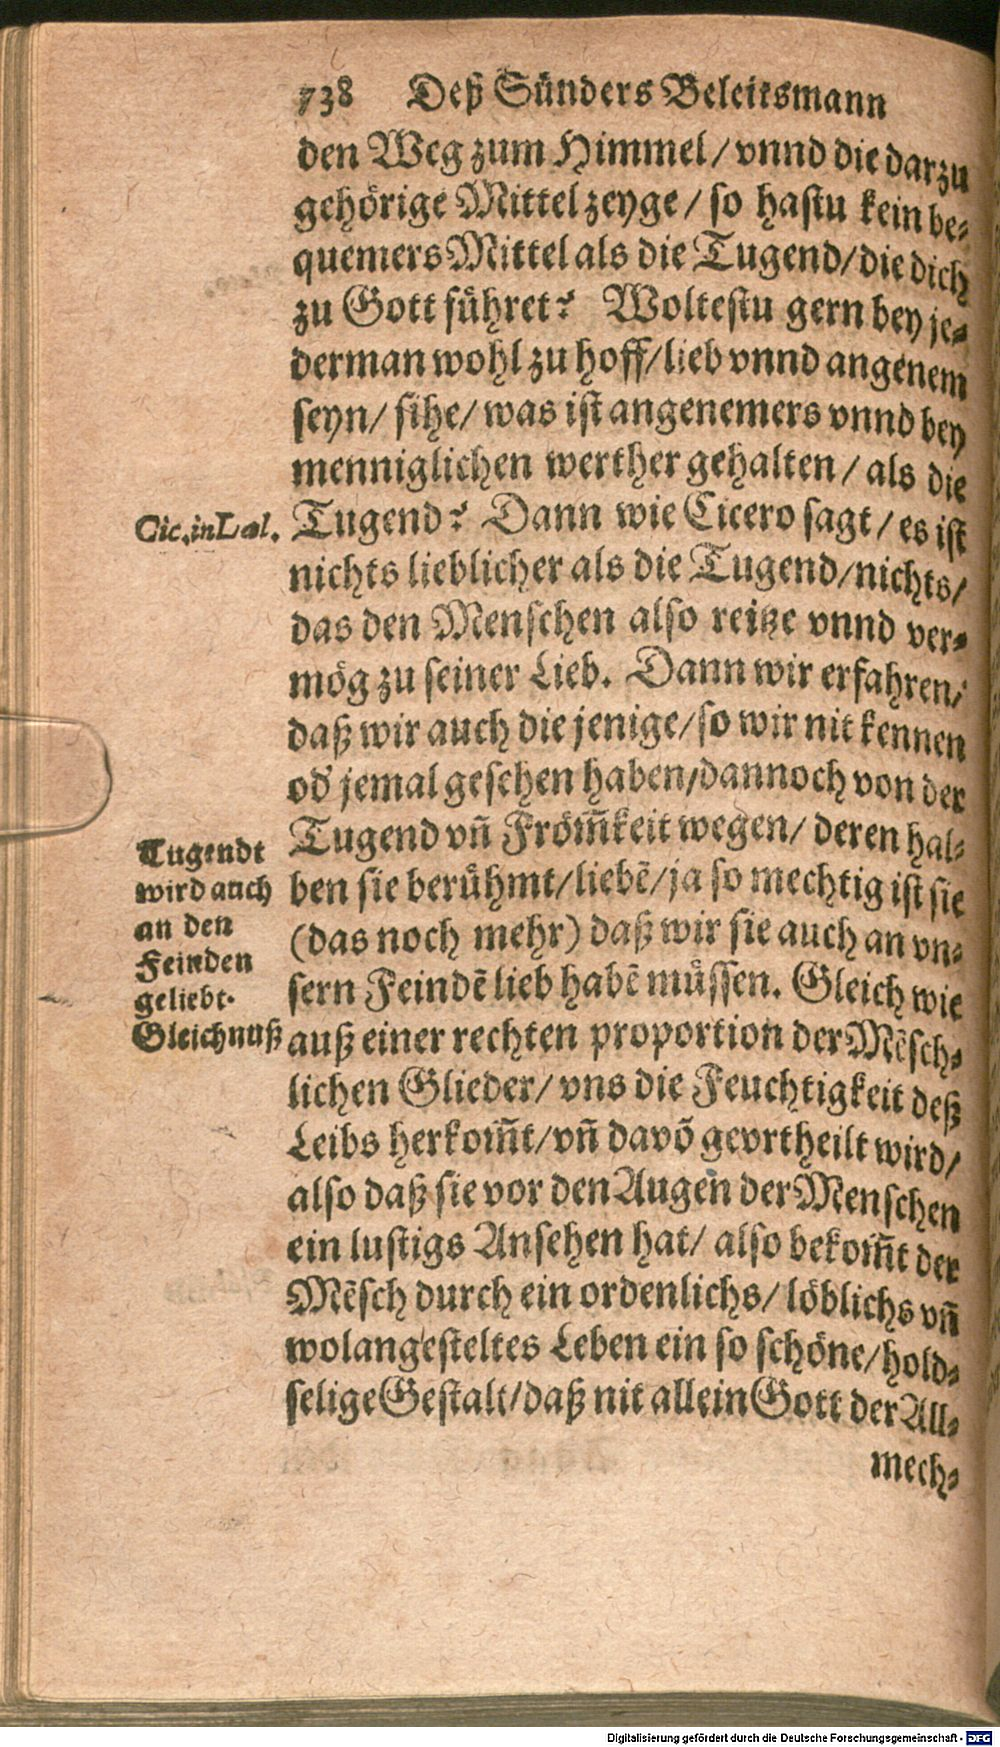 738 Deß Sünders Beleitsmann
den Weg zum Himmel / vnnd die darzu
gehörige Mittel zeyge / so hastu kein be-
quemers Mittel als die Tugend / die dich
zu Gott führet? Woltestu gern bey je-
derman wohl zu hoff / lieb vnnd angenem
seyn / sihe / was ist angenemers vnnd bey
menniglichen werther gehalten / als die
Cic. in Læl.
Tugend? Dann wie Cicero sagt / es ist
nichts lieblicher als die Tugend / nichts /
das den Menschen also reitze vnnd ver-
mög zu seiner Lieb. Dann wir erfahren /
daß wir auch die jenige / so wir nit kennen
od' jemal gesehen haben / dannoch von der
Tugend vñ Fröm̃keit wegen / deren hal-
ben sie berühmt / liebẽ / ja so mechtig ist sie
(das noch mehr) daß wir sie auch an vn-
sern Feindẽ lieb habẽ müssen. Gleich wie
Tugendt
wird auch
an den
Feinden
geliebt.
Gleichnuß
auß einer rechten proportion der Mẽsch-
lichen Glieder / vns die Feuchtigkeit deß
Leibs herkom̃t / vñ davõ gevrtheilt wird /
also daß sie vor den Augen der Menschen
ein lustigs Ansehen hat / also bekom̃t der
Mẽsch durch ein ordenlichs / löblichs vñ
wolangesteltes Leben ein so schöne / hold-
selige Gestalt / daß nit allein Gott der All-
mech-
Digitalisierung gefördert durch die Deutsche Forschungsgemeinschaft - DFG